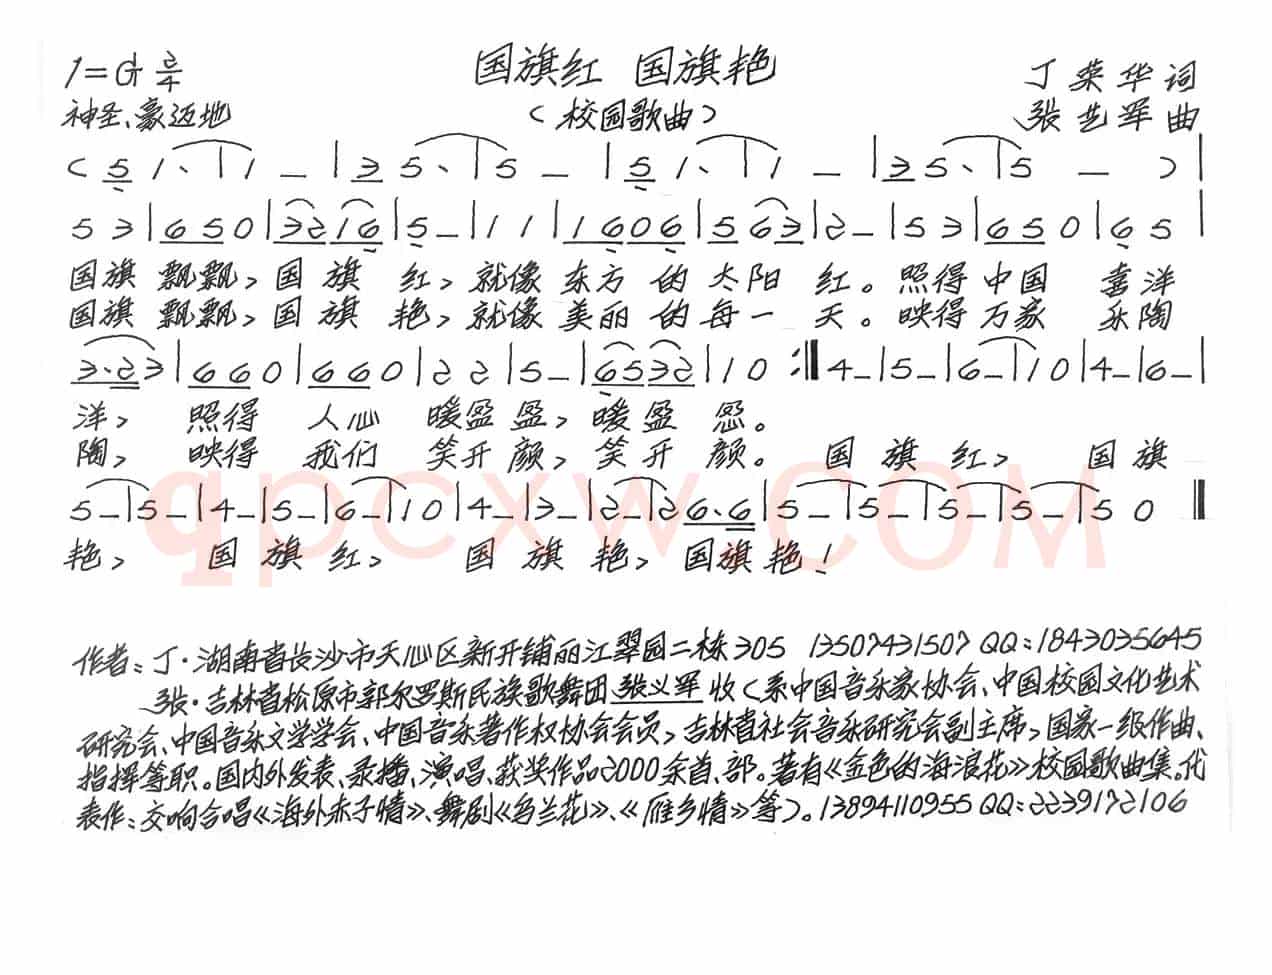 1=G 2/4
国旗红 国旗艳
丁荣华 词
神圣、豪迈地
（校园歌曲）
张艺军 曲
( 5 1· | 1 — | 3 5· | 5 — | 5 1· | 1 — | 3 5· | 5 — ) |
5 3 | 6 5 0 | 3 2 1 6 | 5 — | 1 1 | 1 6 0 6 | 5 6 3 | 2 — | 5 3 | 6 5 0 | 6 5 |
国旗 飘飘，国 旗 红，就像 东方 的 太阳 红。照得 中国 喜洋
国旗 飘飘，国 旗 艳，就像 美丽 的 每一 天。映得 万家 乐陶
3·2 3 | 6 6 0 | 6 6 0 | 2 2 | 5 — | 6 5 3 2 | 1 0 :‖ 4 — | 5 — | 6 — | 1 0 | 4 — | 6 — |
洋， 照得 人心 暖盈 盈，暖盈 盈。
陶， 映得 我们 笑开 颜，笑开 颜。 国 旗 红， 国 旗
5 — | 5 — | 4 — | 5 — | 6 — | 1 0 | 4 — | 3 — | 2 — | 2 6·6 | 5 — | 5 — | 5 — | 5 — | 5 0 ‖
艳， 国 旗 红， 国 旗 艳，国旗艳！
qpcxw.COM
作者：丁·湖南省长沙市天心区新开铺丽江翠园二栋305 13507431507 QQ:1843035645
张·吉林省松原市郭尔罗斯民族歌舞团 张义军 收（系中国音乐家协会、中国校园文化艺术
研究会、中国音乐文学学会、中国音乐著作权协会会员，吉林省社会音乐研究会副主席，国家一级作曲、
指挥等职。国内外发表、录播、演唱、获奖作品2000余首、部。著有《金色的海浪花》校园歌曲集。代
表作：交响合唱《海外赤子情》、舞剧《乌兰花》、《雁乡情》等）。13894110955 QQ:2239172106